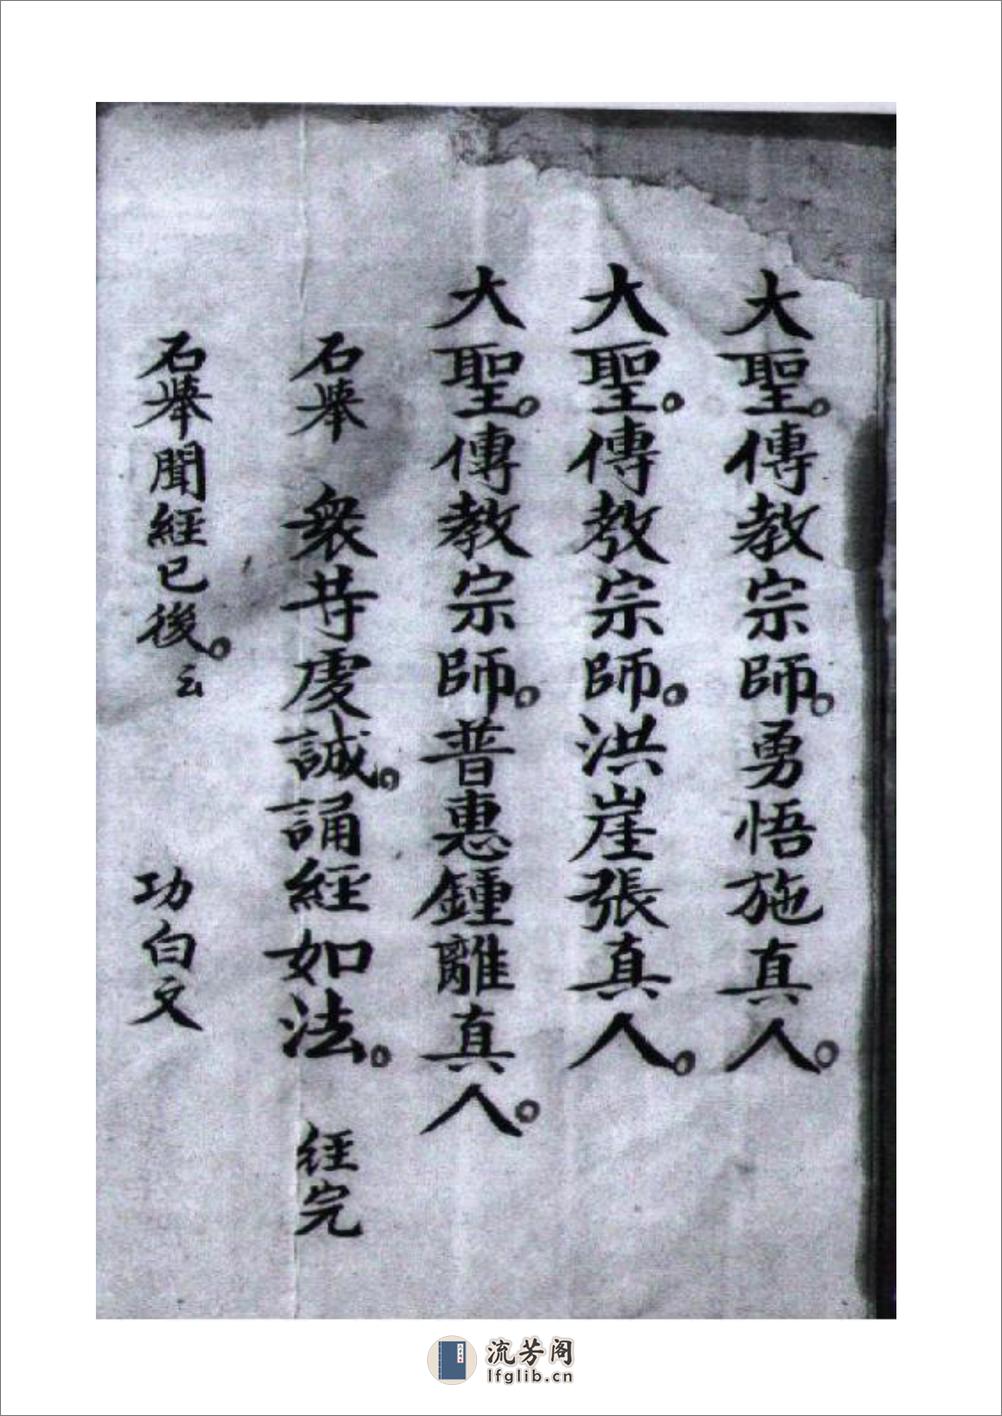 大聖。傳教宗師。勇悟施真人。
大聖。傳教宗師。洪崖張真人。
大聖。傳教宗師。普惠鍾離真人。
右舉 衆等虔誠。誦經如法。 經完
右舉聞經已後。云 功白文
流芳阁
lfglib.cn